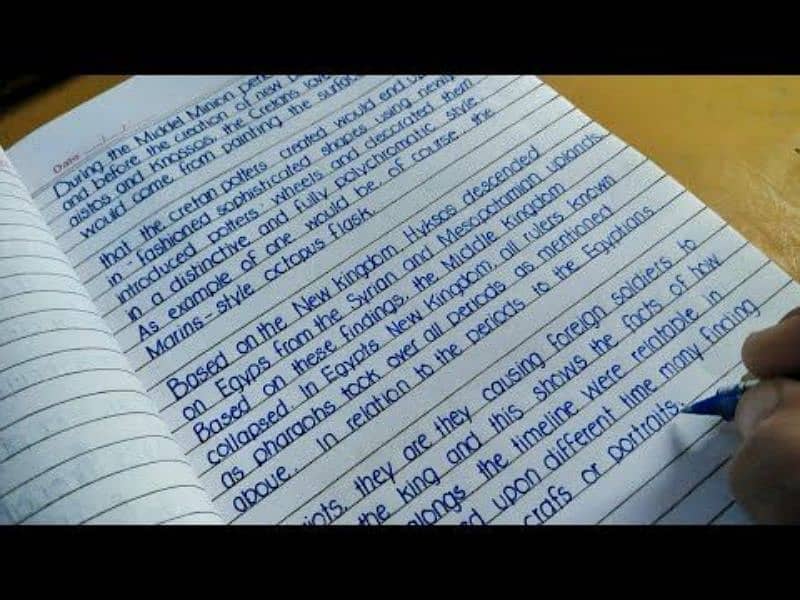 Date
During the Middel Minion peri
and before the creation of new
aistos and Knossos, the Cretans love
would come from painting the surface
that the cretan potters created would end up
in - fashioned sophisticated shapes using newly
introduced potters' wheels and decorated them
in a distinctive and fully polychromatic style
As example of one would be, of course.. the
Marins - style octopus flask.
Based on the New kingdom Hyksos descended
on Egyps from the Syrian and Mesopotamian uplands
Based on these findings, the Middle Kingdom
collapsed in Egypts New Kingdom, all rulers known
as pharaohs took over all periods as mentioned
above.. In relation to the periods to the Egyptians
iots, they are they causing foreign soldiers to
the king and this shows the facts of how
alongs the timeline were relatable in
ed upon different time many finding
crafs or portraits.